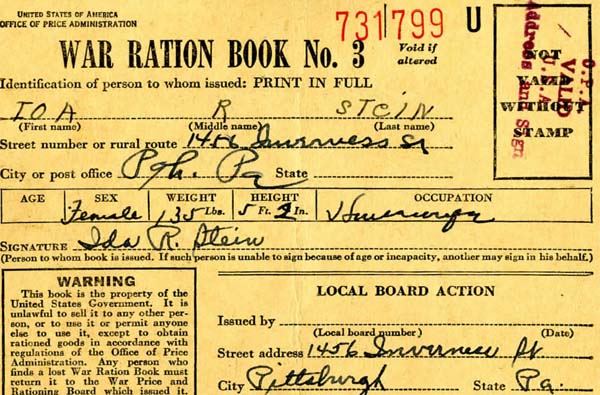 UNITED STATES OF AMERICA
OFFICE OF PRICE ADMINISTRATION
731799 U
WAR RATION BOOK No. 3
Void if
altered
Identification of person to whom issued: PRINT IN FULL
IDA R STEIN
(First name) (Middle name) (Last name)
Street number or rural route 1456 Inverness St
City or post office Pgh. Pa State
AGE SEX WEIGHT HEIGHT OCCUPATION
Female 135 Lbs. 5 Ft. 2 In. Housewife
SIGNATURE Ida R. Stein
(Person to whom book is issued. If such person is unable to sign because of age or incapacity, another may sign in his behalf.)
NOT
VALID
WITHOUT
STAMP
O.P.A.
VALID
Address and Sign
WARNING
This book is the property of the
United States Government. It is
unlawful to sell it to any other per-
son, or to use it or permit anyone
else to use it, except to obtain
rationed goods in accordance with
regulations of the Office of Price
Administration. Any person who
finds a lost War Ration Book must
return it to the War Price and
Rationing Board which issued it.
LOCAL BOARD ACTION
Issued by
(Local board number) (Date)
Street address 1456 Inverness St
City Pittsburgh State Pa.